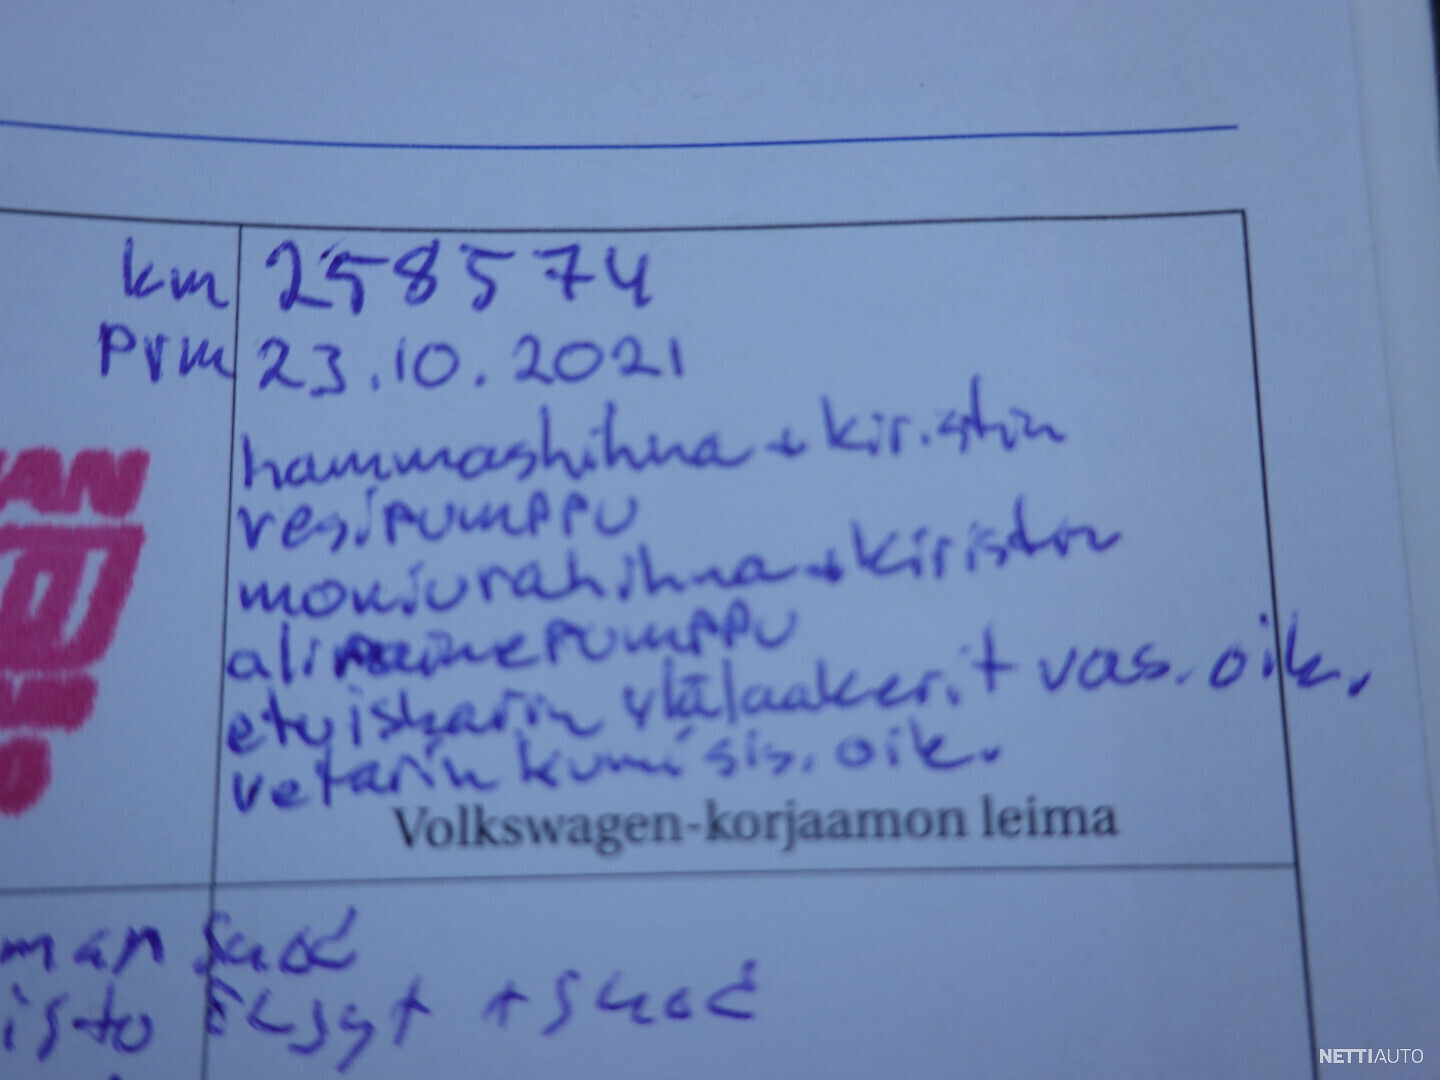 km 258574
pvm 23.10.2021
hammashihna + kiristin
vesipumppu
moniurahihna + kiristin
alipainepumppu
etuiskarin ylälaakerit vas. oik.
vetarin kumi sis. oik.
Volkswagen-korjaamon leima
AN
öljyt + suod
NETTIAUTO